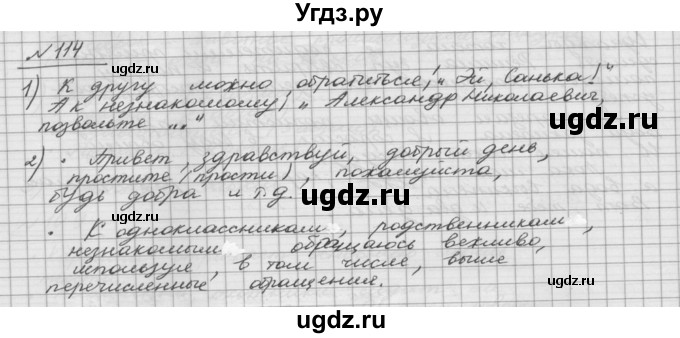 Угдз.ру
№ 114
1) К другу можно обратиться: "Эй, Санька!"
А к незнакомому: "Александр Николаевич,
позвольте ..."
2) • Привет, здравствуй, добрый день,
простите (прости), пожалуйста,
будь добра и т.д.
• К одноклассникам, родственникам,
незнакомым, обращаюсь вежливо,
используе, в том числе, выше
перечисленные обращения.
ugdz.ru
ugdz.ru
ugdz.ru
ugdz.ru
ugdz.ru
ugdz.ru
ugdz.ru
ugdz.ru
ugdz.ru
ugdz.ru
ugdz.ru